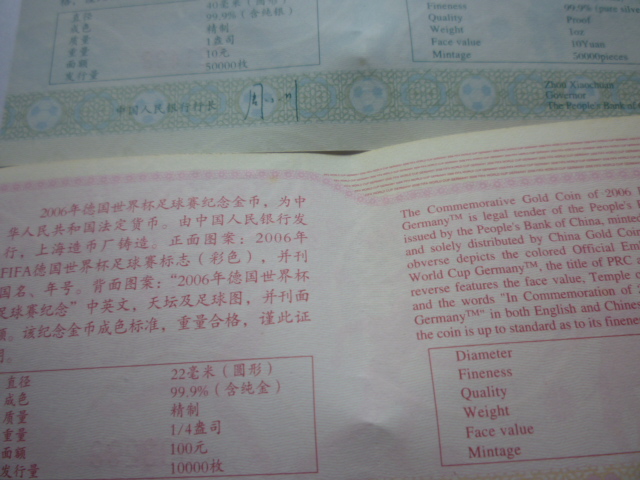 40毫米（圆形）
直径
99.9%（含纯银）
成色
精制
质量
1盎司
重量
10元
面额
50000枚
发行量
Fineness
99.9% (pure silv
Quality
Proof
Weight
1oz
Face value
10Yuan
Mintage
50000pieces
中国人民银行行长
Zhou Xiaochuan
Governor
The People's Bank of
2006年德国世界杯足球赛纪念金币，为中
华人民共和国法定货币。由中国人民银行发
行，上海造币厂铸造。正面图案：2006年
FIFA德国世界杯足球赛标志（彩色），并刊
国名、年号。背面图案："2006年德国世界杯
足球赛纪念"中英文，天坛及足球图，并刊面
额。该纪念金币成色标准，重量合格，谨此证
明。
直径 22毫米（圆形）
成色 99.9%（含纯金）
质量 精制
重量 1/4盎司
面额 100元
发行量 10000枚
The Commemorative Gold Coin of 2006
Germany™ is legal tender of the People's
issued by the People's Bank of China, minte
and solely distributed by China Gold Coin
obverse depicts the colored Official Em
World Cup Germany™, the title of PRC a
reverse features the face value, Temple
and the words "In Commemoration of 2
Germany™" in both English and Chines
the coin is up to standard as to its finene
Diameter
Fineness
Quality
Weight
Face value
Mintage